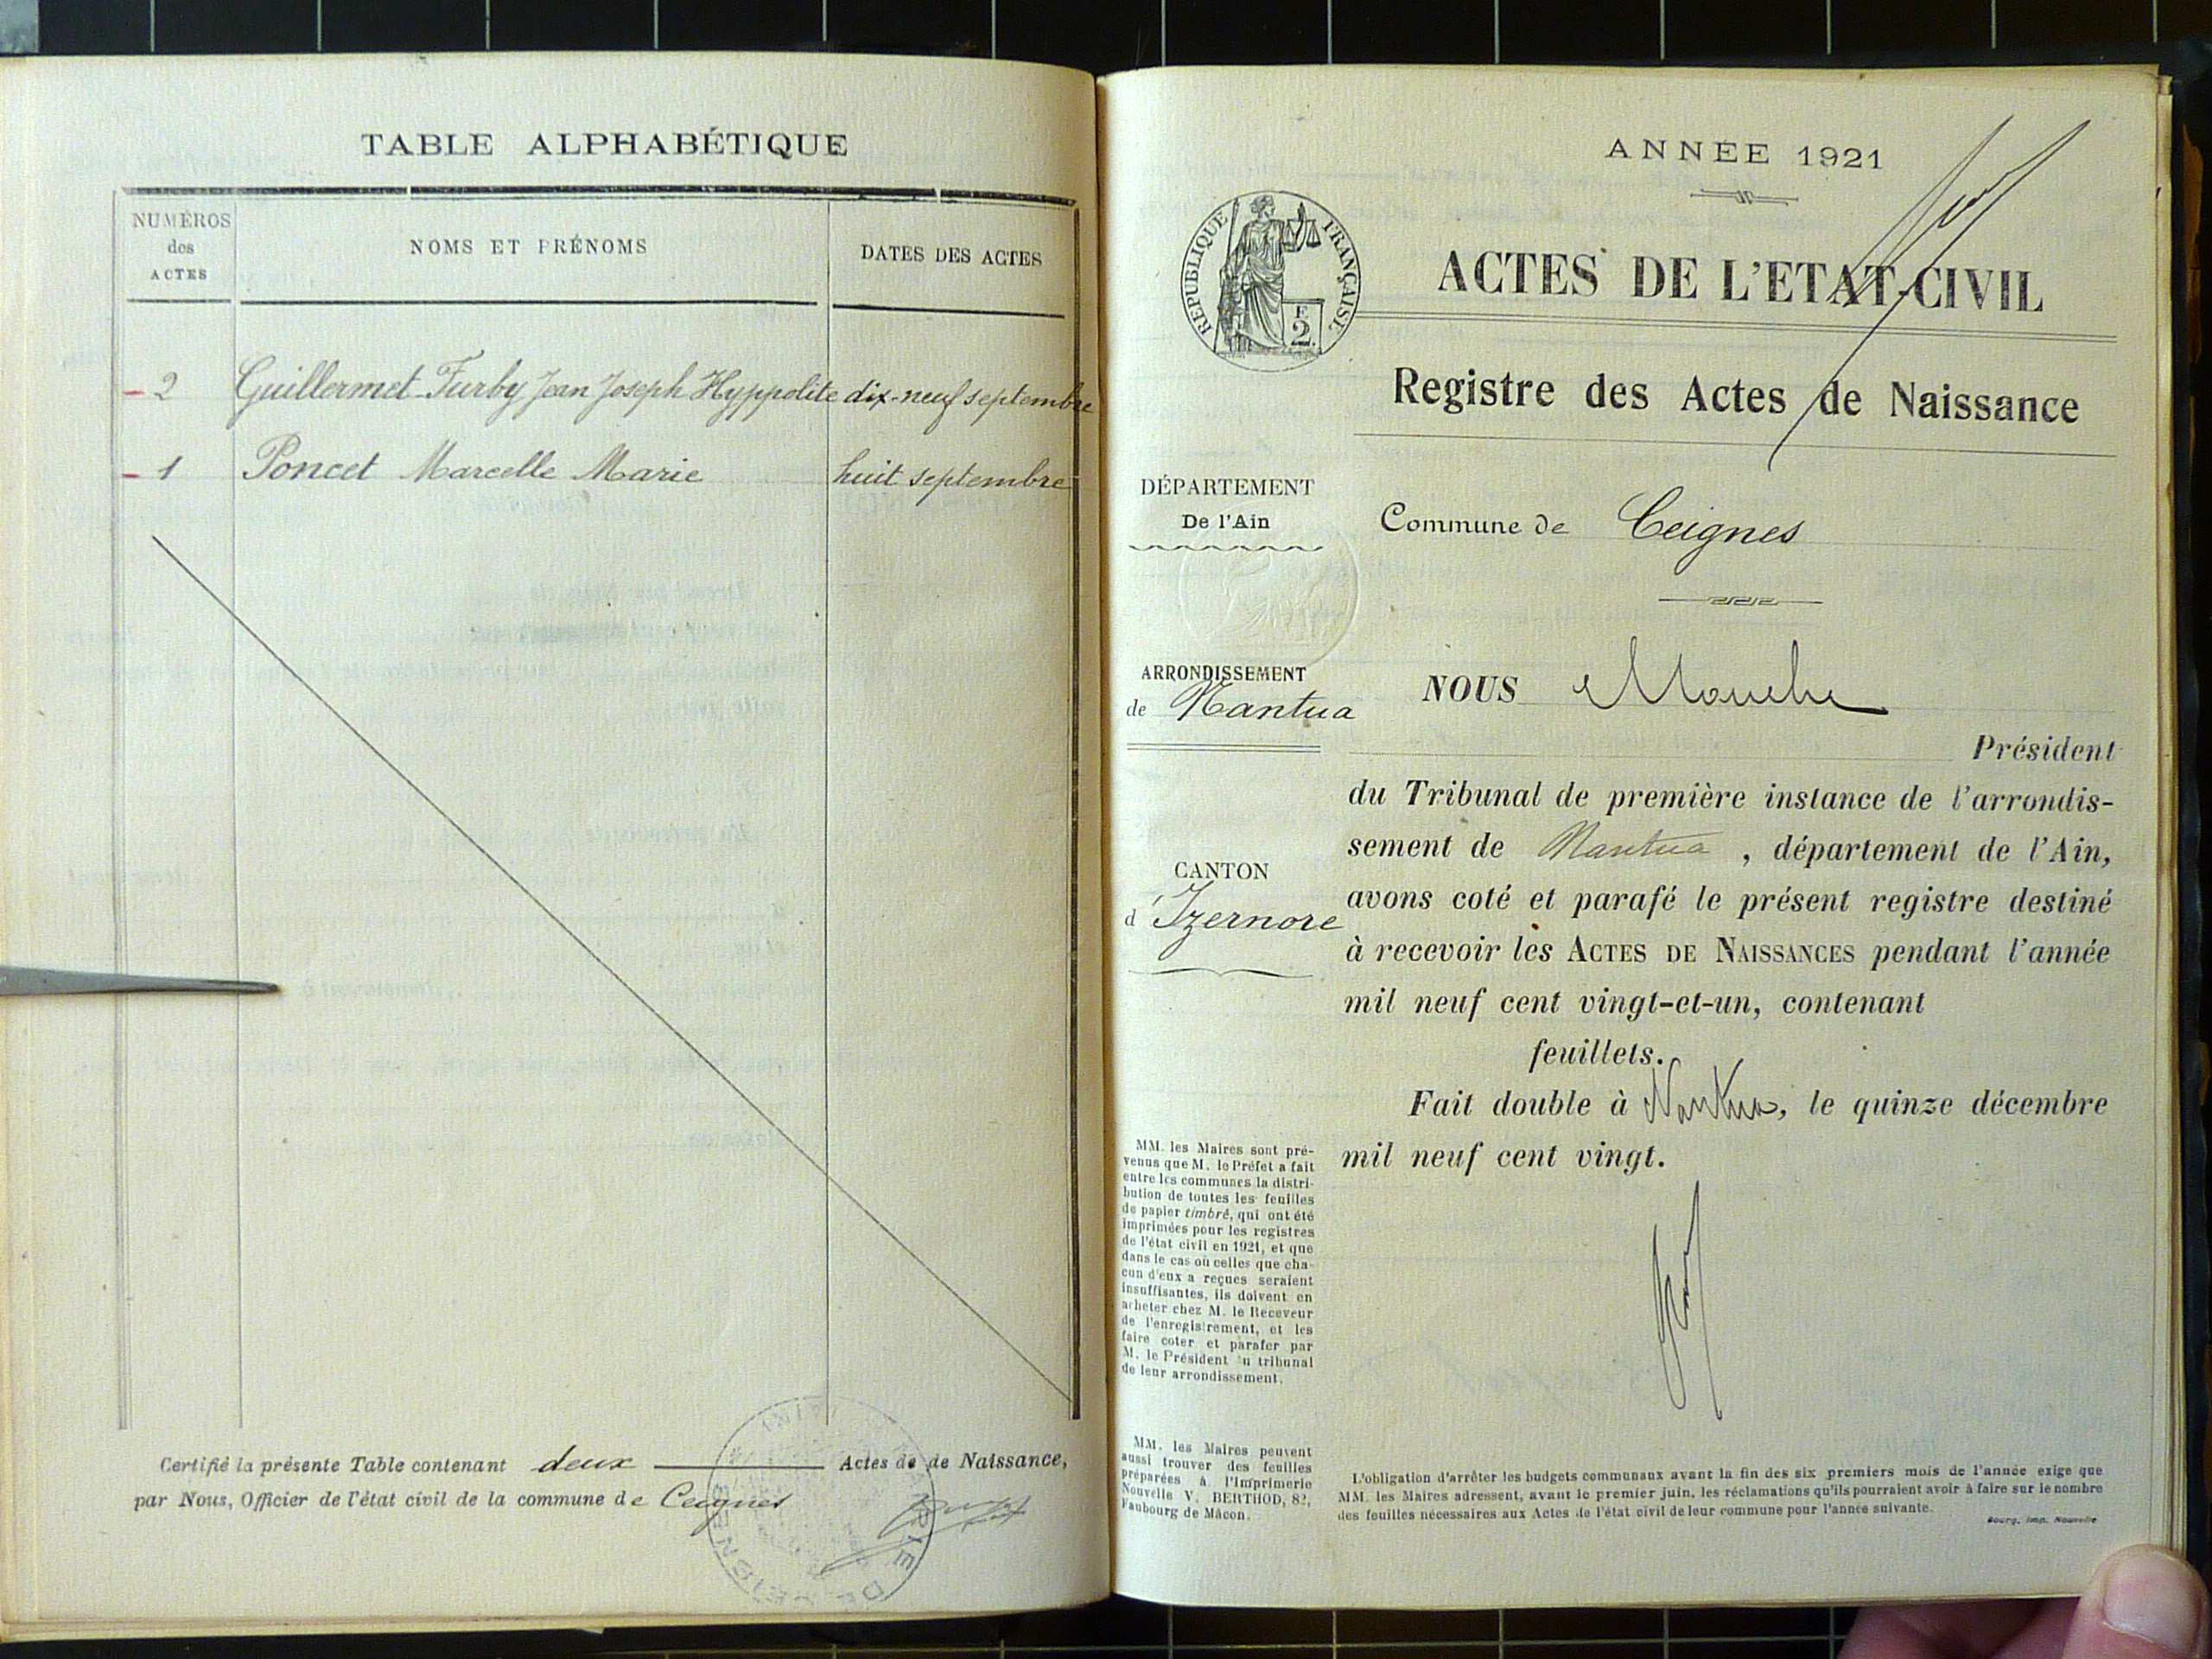 TABLE ALPHABÉTIQUE
NUMÉROS
des
ACTES
NOMS ET PRÉNOMS
DATES DES ACTES
2 Guillermet-Furby Jean Joseph Hyppolite dix-neuf septembre
1 Poncet Marcelle Marie huit septembre
Certifié la présente Table contenant deux Actes de de Naissance,
par Nous, Officier de l'état civil de la commune de Ceignes
ANNÉE 1921
RÉPUBLIQUE FRANÇAISE
F
2
ACTES DE L'ETAT-CIVIL
Registre des Actes de Naissance
DÉPARTEMENT
De l'Ain
Commune de Ceignes
ARRONDISSEMENT
de Nantua
NOUS
Président
du Tribunal de première instance de l'arrondis-
sement de Nantua, département de l'Ain,
CANTON
d'Izernore
avons coté et parafé le présent registre destiné
à recevoir les ACTES DE NAISSANCES pendant l'année
mil neuf cent vingt-et-un, contenant
feuillets.
Fait double à Nantua, le quinze décembre
mil neuf cent vingt.
MM. les Maires sont pré-
venus que M. le Préfet a fait
entre les communes la distri-
bution de toutes les feuilles
de papier timbré, qui ont été
imprimées pour les registres
de l'état civil en 1921, et que
dans le cas où celles que cha-
cun d'eux a reçues seraient
insuffisantes, ils doivent en
acheter chez M. le Receveur
de l'enregistrement, et les
faire coter et parafer par
M. le Président du tribunal
de leur arrondissement.
MM. les Maires peuvent
aussi trouver des feuilles
préparées à l'Imprimerie
Nouvelle V. BERTHOD, 82,
Faubourg de Mâcon.
L'obligation d'arrêter les budgets communaux avant la fin des six premiers mois de l'année exige que
MM. les Maires adressent, avant le premier juin, les réclamations qu'ils pourraient avoir à faire sur le nombre
des feuilles nécessaires aux Actes de l'état civil de leur commune pour l'année suivante.
Bourg, Imp. Nouvelle